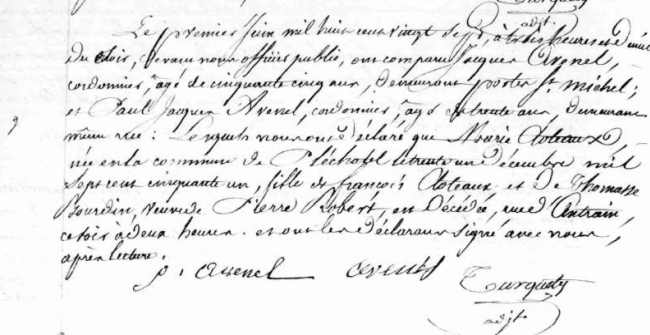 Turquety
adjt.
Le premier Juin mil huit cent vingt sept, à trois heures et demie
du soir, devant nous officier public, ont comparu Jacques Avenel,
cordonnier, agé de cinquante cinq ans, demeurant porte St. Michel;
et Paul Jacques Avenel, cordonnier, agé de trente ans, demeurant
même rue: Lesquels nous ont déclaré que Marie Aoteaux,
née en la commune de Pléchatel le trente un décembre mil
sept cent cinquante un, fille de françois Aoteaux et de Thomasse
Jourdin, veuve de Pierre Robert, est Décédée, rue d'Antrain,
ce soir à deux heures. et ont les déclarans signé avec nous,
après lecture.
p. j. avenel avenel Turquety
adjt.